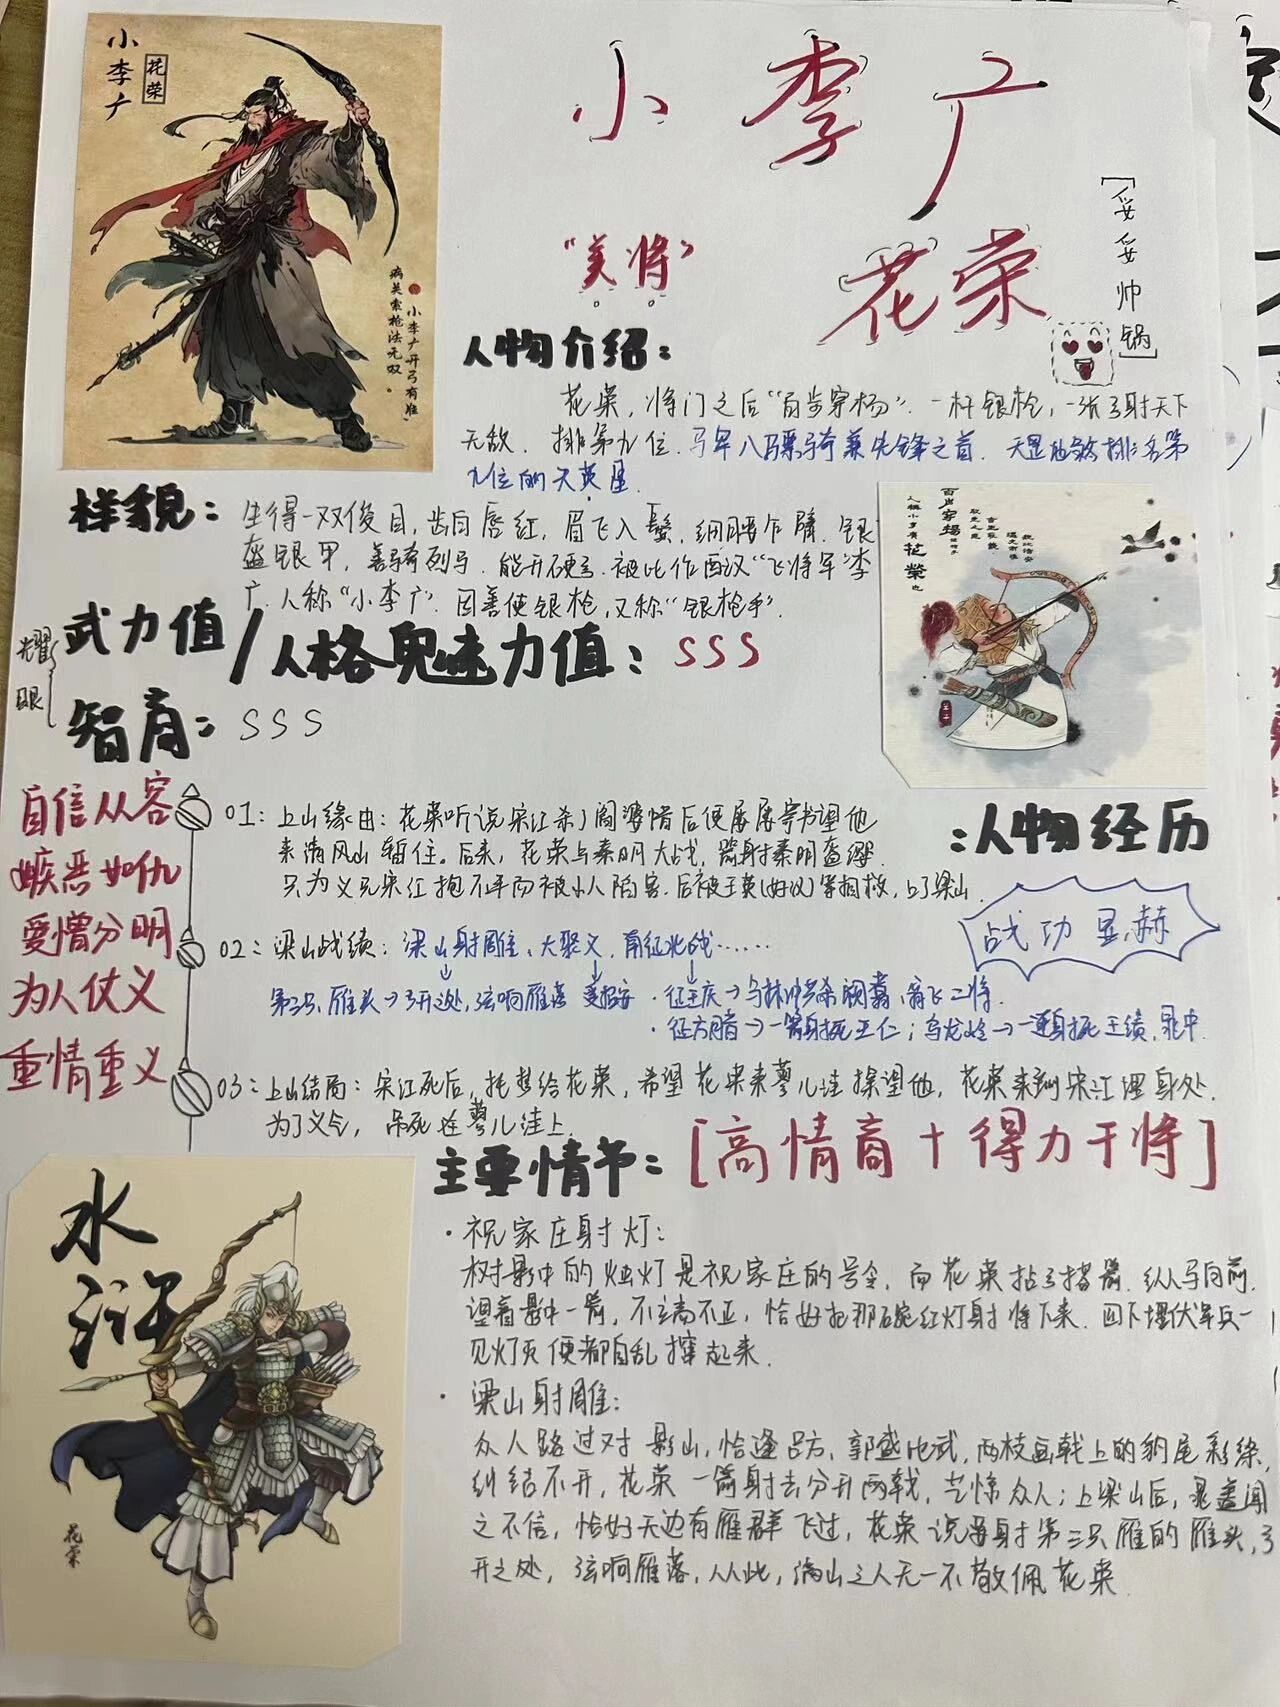 小李广
花荣
小李广
花荣
"美将"
[妥妥帅锅]
小李广开弓有准
病关索枪法无双。
人物介绍：
花荣，将门之后"百步穿杨"．一杆银枪，一张弓射天下
无敌．排第九位．马军八骠骑兼先锋之首．天罡地煞排名第
九位的天英星
样貌：
生得一双俊目，齿白唇红，眉飞入鬓，细腰乍臂．银
盔银甲，善骑烈马．能开硬弓．被比作西汉"飞将军"李
广．人称"小李广"．因善使银枪，又称"银枪手"．
百步穿杨
花荣也
武力值/人格魅力值：SSS
耀眼
智商：SSS
自信从容
嫉恶如仇
爱憎分明
为人仗义
重情重义
：人物经历
战功显赫
01：上山缘由：花荣听说宋江杀了阎婆惜后便屡屡写书望他
来清风山暂住。后来，花荣与秦明大战，箭射秦明盔缨．
只为义兄宋江抱不平而被小人陷害．后被王英(好汉)等相救，上了梁山．
02：梁山战绩：梁山射雁、大聚义，南征北战……
第三只，雁头→弓开处，弦响雁落 受招安 ·征王庆→与林冲共杀阙翥、翁飞二将．
·征方腊→一箭射死王仁；乌龙岭→连射死王绩，晁中．
03：上山结局：宋江死后，托梦给花荣，希望花荣来蓼儿洼探望他，花荣来到宋江埋身处．
为了义令，吊死在蓼儿洼上．
主要情节：[高情商+得力干将]
·祝家庄射灯：
树影中的烛灯是祝家庄的号令，而花荣拈弓搭箭．纵马向前．
望着影中一箭，不高不正，恰好把那碗红灯射将下来．四下埋伏军兵一
见灯灭便都自乱撺起来．
·梁山射雁：
众人路过对影山，恰逢吕方，郭盛比武，两枝画戟上的豹尾彩绦，
纠结不开，花荣一箭射去分开两戟，艺惊众人；上梁山后，晁盖闻
之不信，恰好天边有雁群飞过，花荣说要射第三只雁的雁头，弓
开之处，弦响雁落，从此，满山之人无一不敬佩花荣．
水浒
花荣